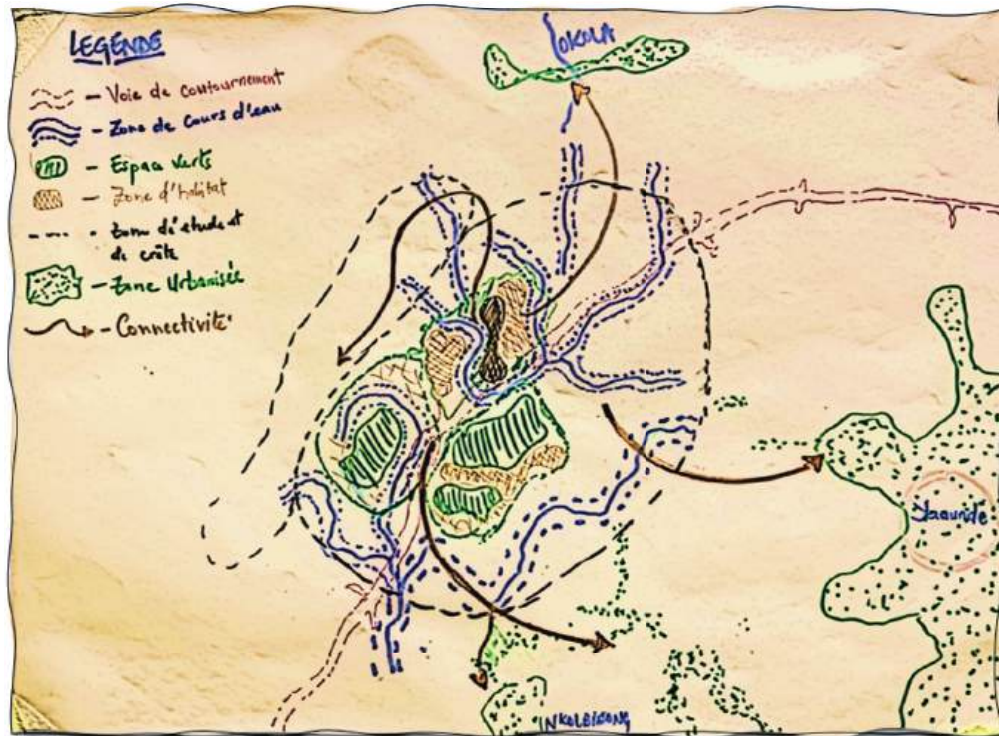 LEGENDE
- Voie de contournement
- Zone de Cours d'eau
- Espace Verts
- Zone d'habitat
- Zone d'étude et
de crête
- Zone Urbanisée
- Connectivité
LOKOLA
Yaounde
NKOLBISONG